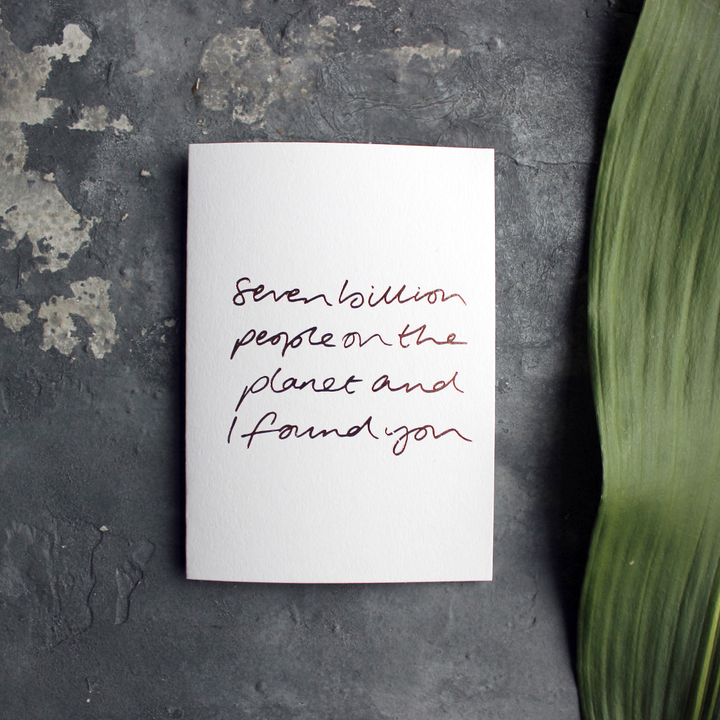 seven billion
people on the
planet and
I found you